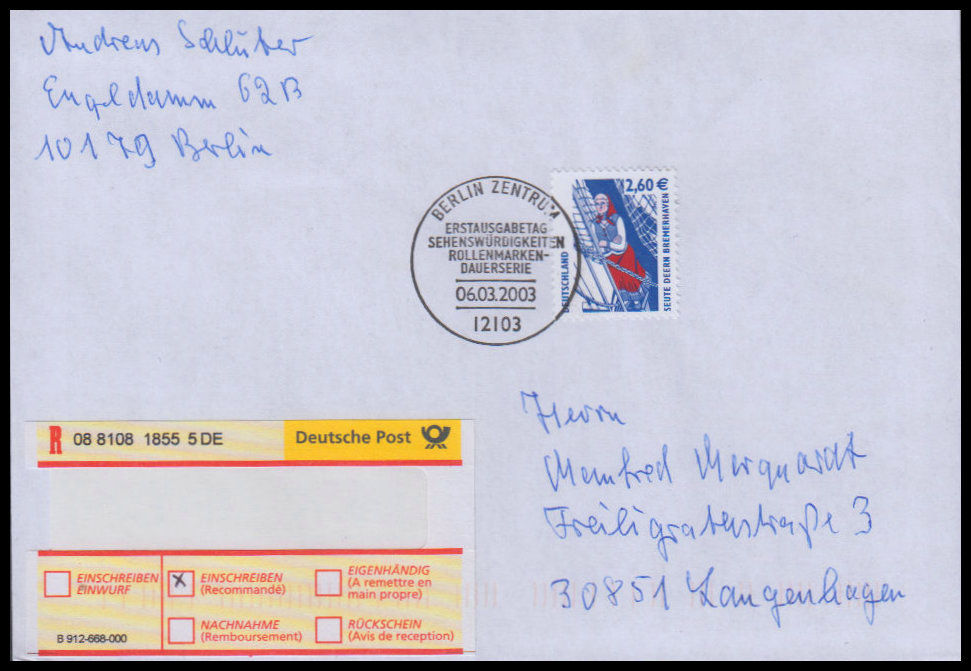 Andreas Schlüter
Engeldamm 62B
10179 Berlin
BERLIN ZENTRUM
ERSTAUSGABETAG
SEHENSWÜRDIGKEITEN
ROLLENMARKEN-
DAUERSERIE
06.03.2003
12103
2,60 €
DEUTSCHLAND
SEUTE DEERN BREMERHAVEN
Herrn
Manfred Marquardt
Freiligratenstraße 3
30851 Langenhagen
R 08 8108 1855 5 DE
Deutsche Post
EINSCHREIBEN
EINWURF
EINSCHREIBEN
(Recommandé)
EIGENHÄNDIG
(A remettre en
main propre)
NACHNAHME
(Remboursement)
RÜCKSCHEIN
(Avis de reception)
B 912-668-000